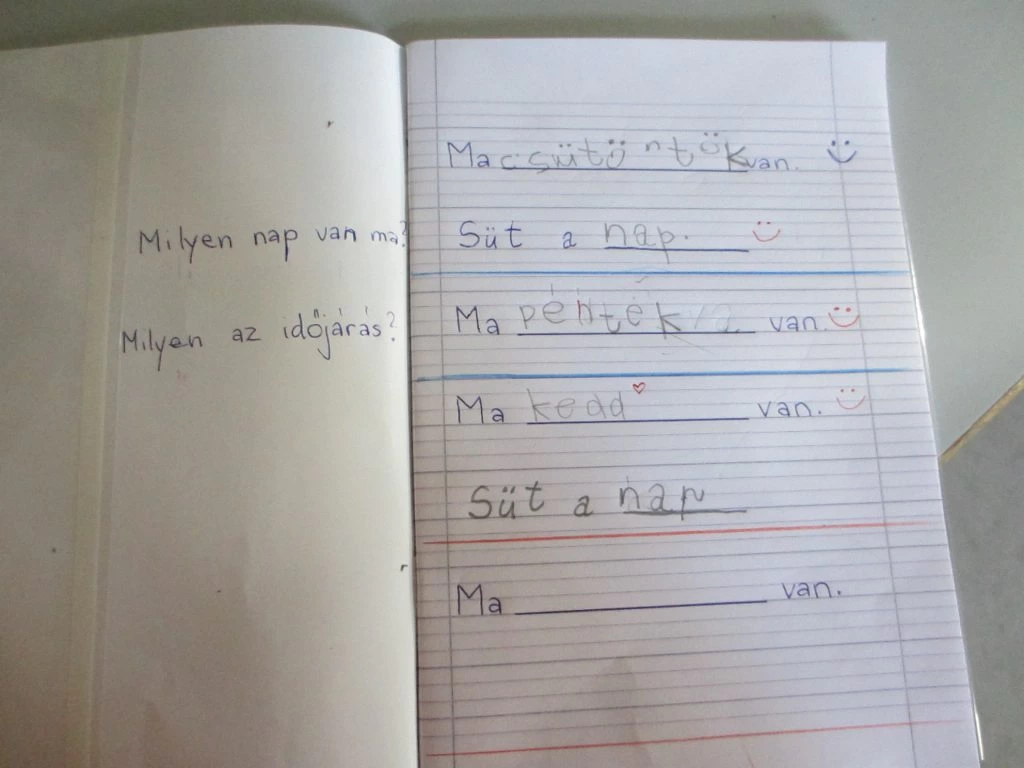 Milyen nap van ma?
Milyen az időjárás?
Ma csütöntök van.
Süt a nap.
Ma péntek van.
Ma kedd van.
Süt a nap
Ma ____________ van.